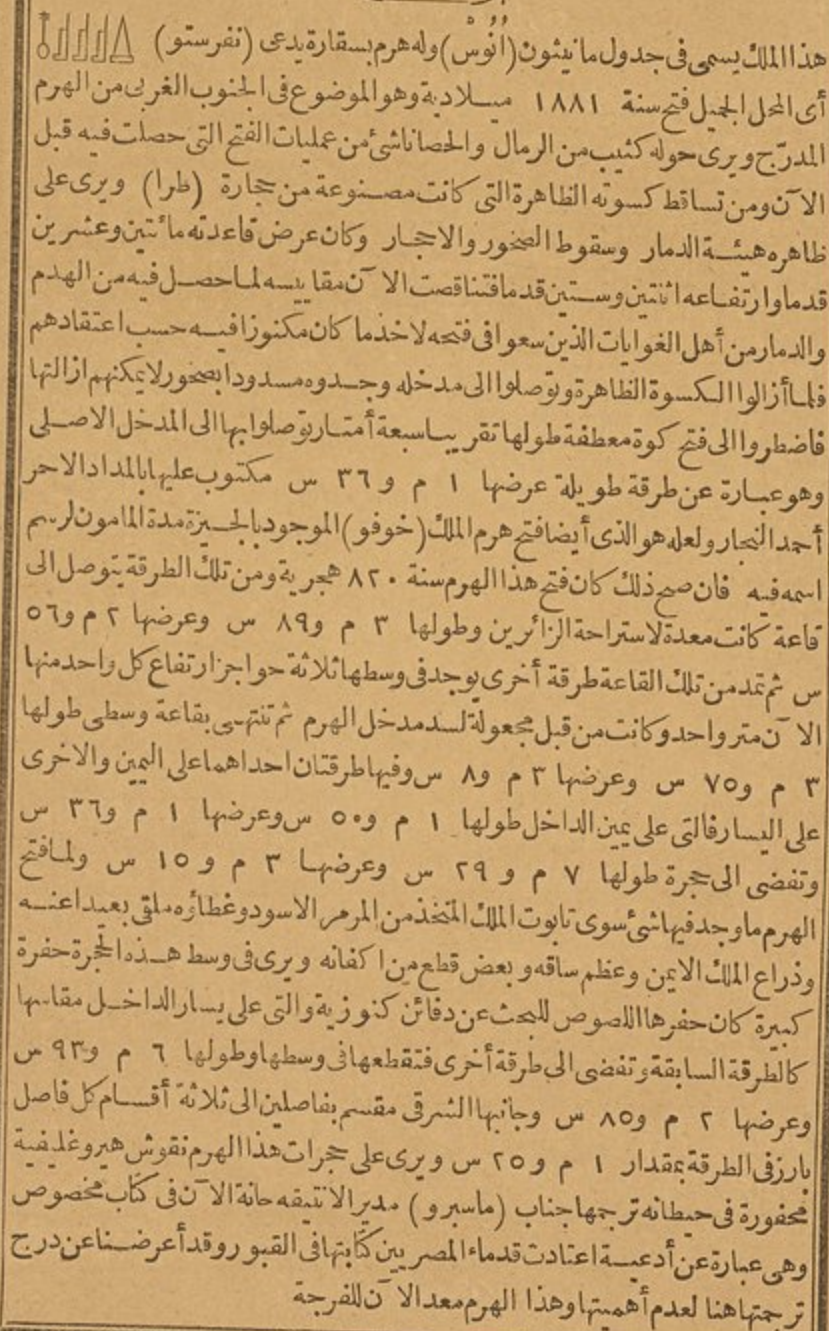 هذا الملك يسمى فى جدول مانيثون (انُوُسْ) وله هرم بسقارة يدعى (نفرستو)
أى المحل الجميل فتح سنة ١٨٨١ ميلادية وهو الموضوع فى الجنوب الغربى من الهرم
المدرّج ويرى حوله كثيب من الرمال والحصا ناشئ من عمليات الفتح التى حصلت فيه قبل
الآن ومن تساقط كسوته الظاهرة التى كانت مصنوعة من حجارة (طرا) ويرى على
ظاهره هيئة الدمار وسقوط الصخور والاحجار وكان عرض قاعدته مائتين وعشرين
قدما وارتفاعه اثنتين وستين قدما فتناقصت الآن مقاييسه لما حصل فيه من الهدم
والدمار من أهل الغوايات الذين سعوا فى فتحه لاخذ ما كان مكنوزا فيه حسب اعتقادهم
فلما أزالوا الكسوة الظاهرة وتوصلوا الى مدخله وجدوه مسدودا بصخور لا يمكنهم ازالتها
فاضطروا الى فتح كوة معطفة طولها تقريبا سبعة أمتار توصلوا بها الى المدخل الاصلى
وهو عبارة عن طرقة طويلة عرضها ١ م و ٣٦ س مكتوب عليها بالمداد الاحر
أحمد النجار ولعله هو الذى أيضا فتح هرم الملك (خوفو) الموجود بالجيزة مدة المامون لرسم
اسمه فيه فان صح ذلك كان فتح هذا الهرم سنة ٨٢٠ هجرية ومن تلك الطرقة يتوصل الى
قاعة كانت معدة لاستراحة الزائرين وطولها ٣ م و ٨٩ س وعرضها ٢ م و ٥٦
س ثم تمد من تلك القاعة طرقة أخرى يوجد فى وسطها ثلاثة حواجز ارتفاع كل واحد منها
الآن متر واحد وكانت من قبل مجعولة لسد مدخل الهرم ثم تنتهى بقاعة وسطى طولها
٣ م و ٧٥ س وعرضها ٣ م و ٨ س وفيها طرقتان احداهما على اليمين والاخرى
على اليسار فالتى على يمين الداخل طولها ١ م و ٥٠ س وعرضها ١ م و ٣٦ س
وتفضى الى حجرة طولها ٧ م و ٢٩ س وعرضها ٣ م و ١٥ س ولما فتح
الهرم ما وجد فيها شئ سوى تابوت الملك المتخذ من المرمر الاسود وغطاؤه ملقى بعيدا عنه
وذراع الملك الايمن وعظم ساقه وبعض قطع من اكفانه ويرى فى وسط هذه الحجرة حفرة
كبيرة كان حفرها اللصوص للبحث عن دفائن كنوزية والتى على يسار الداخل مقاسها
كالطرقة السابقة وتفضى الى طرقة أخرى فتقطعها فى وسطها وطولها ٦ م و ٩٣ س
وعرضها ٢ م و ٨٥ س وجانبها الشرقى مقسم بفاصلين الى ثلاثة أقسام كل فاصل
بارز فى الطرقة بمقدار ١ م و ٢٥ س ويرى على حجرات هذا الهرم نقوش هيروغليفية
محفورة فى حيطانه ترجمها جناب (ماسبرو) مدير الانتيقه خانة الآن فى كتاب مخصوص
وهى عبارة عن أدعية اعتادت قدماء المصريين كتابتها فى القبور وقد أعرضنا عن درج
ترجمتها هنا لعدم أهميتها وهذا الهرم معد الآن للفرجة